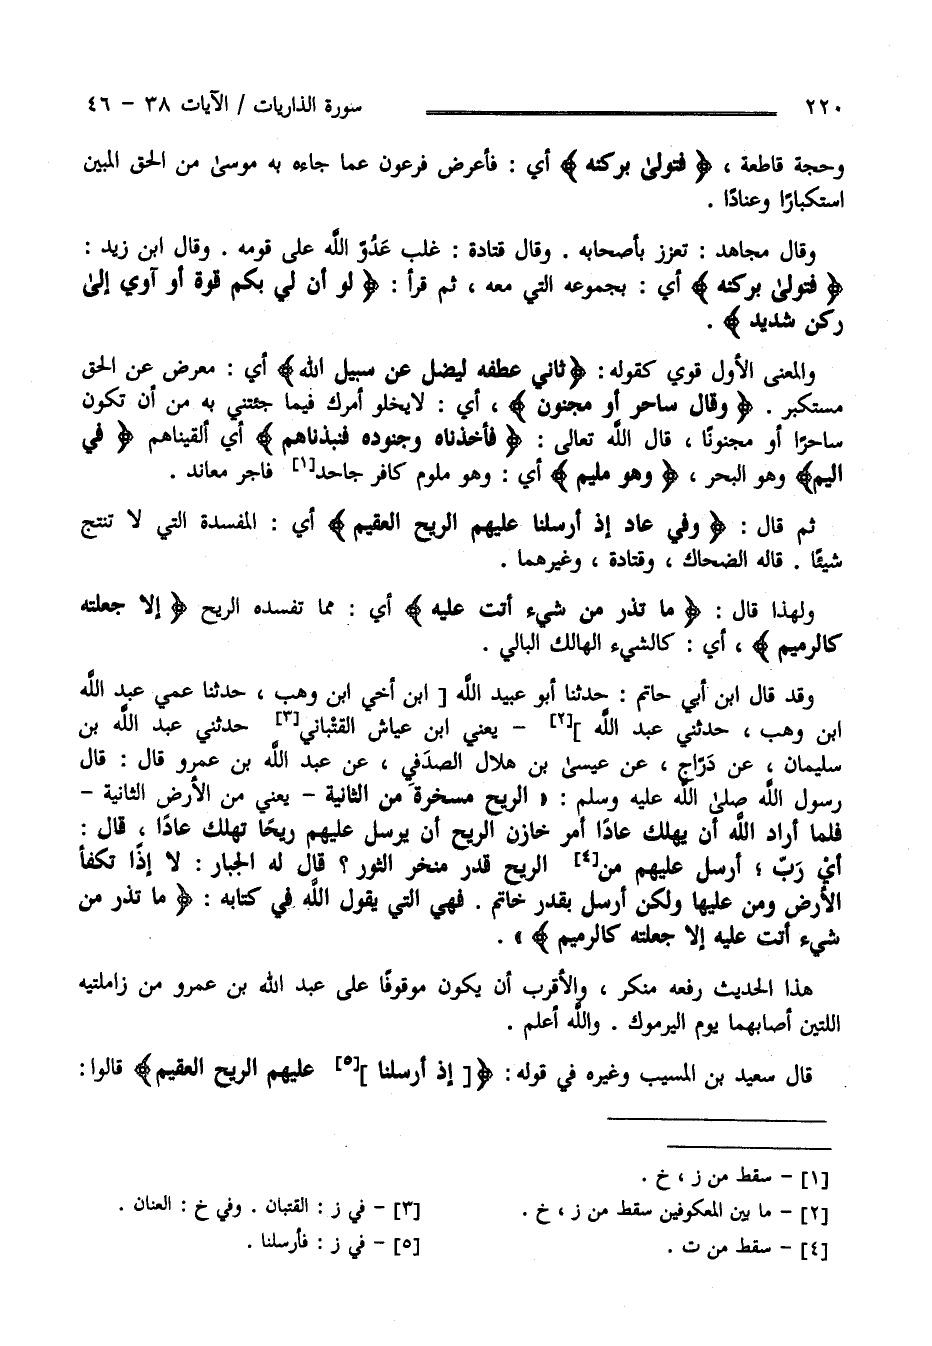 ٢٢٠ سورة الذاريات / الآيات ٣٨ - ٤٦
وحجة قاطعة ، ﴿ فتولىٰ بركنه ﴾ أي : فأعرض فرعون عما جاءه به موسىٰ من الحق المبين
استكبارًا وعنادًا .
وقال مجاهد : تعزز بأصحابه . وقال قتادة : غلب عَدُوّ اللَّه على قومه . وقال ابن زيد :
﴿ فتولىٰ بركنه ﴾ أي : بجموعه التي معه ، ثم قرأ : ﴿ لو أن لي بكم قوة أو آوي إلىٰ
ركن شديد ﴾ .
والمعنى الأول قوي كقوله : ﴿ثاني عطفه ليضل عن سبيل الله﴾ أي : معرض عن الحق
مستكبر . ﴿ وقال ساحر أو مجنون ﴾ ، أي : لايخلو أمرك فيما جئتني به من أن تكون
ساحرًا أو مجنونًا ، قال اللَّه تعالى : ﴿ فأخذناه وجنوده فنبذناهم﴾ أي ألقيناهم ﴿ في
اليم﴾ وهو البحر ، ﴿ وهو مليم ﴾ أي : وهو ملوم كافر جاحد[١] فاجر معاند .
ثم قال : ﴿ وفي عاد إذ أرسلنا عليهم الريح العقيم ﴾ أي : المفسدة التي لا تنتج
شيئًا . قاله الضحاك ، وقتادة ، وغيرهما .
ولهذا قال : ﴿ ما تذر من شيء أتت عليه ﴾ أي : مما تفسده الريح ﴿ إلا جعلته
كالرميم ﴾ ، أي : كالشيء الهالك البالي .
وقد قال ابن أبي حاتم : حدثنا أبو عبيد اللَّه [ ابن أخي ابن وهب ، حدثنا عمي عبد اللَّه
ابن وهب ، حدثني عبد اللَّه ][٢] - يعني ابن عياش القتْباني[٣] حدثني عبد اللَّه بن
سليمان ، عن دَرّاج ، عن عيسىٰ بن هلال الصدَفي ، عن عبد اللَّه بن عمرو قال : قال
رسول اللَّه صلىٰ اللَّه عليه وسلم : « الريح مسخرة من الثانية - يعني من الأرض الثانية -
فلما أراد اللَّه أن يهلك عادًا أمر خازن الريح أن يرسل عليهم ريحًا تهلك عادًا ، قال :
أيْ رَبّ ؛ أرسل عليهم من[٤] الريح قدر منخر الثور ؟ قال له الجبار : لا إذًا تكفأ
الأرض ومن عليها ولكن أرسل بقدر خاتم . فهي التي يقول اللَّه في كتابه : ﴿ ما تذر من
شيء أتت عليه إلا جعلته كالرميم ﴾ » .
هذا الحديث رفعه منكر ، والأقرب أن يكون موقوفًا على عبد الله بن عمرو من زاملتيه
اللتين أصابهما يوم اليرموك . واللَّه أعلم .
قال سعيد بن المسيب وغيره في قوله : ﴿[ إذ أرسلنا ][٥] عليهم الريح العقيم﴾ قالوا :
[١] - سقط من ز ، خ .
[٢] - ما بين المعكوفين سقط من ز ، خ . [٣] - في ز : القتبان . وفي خ : العنان .
[٤] - سقط من ت . [٥] - في ز : فأرسلنا .